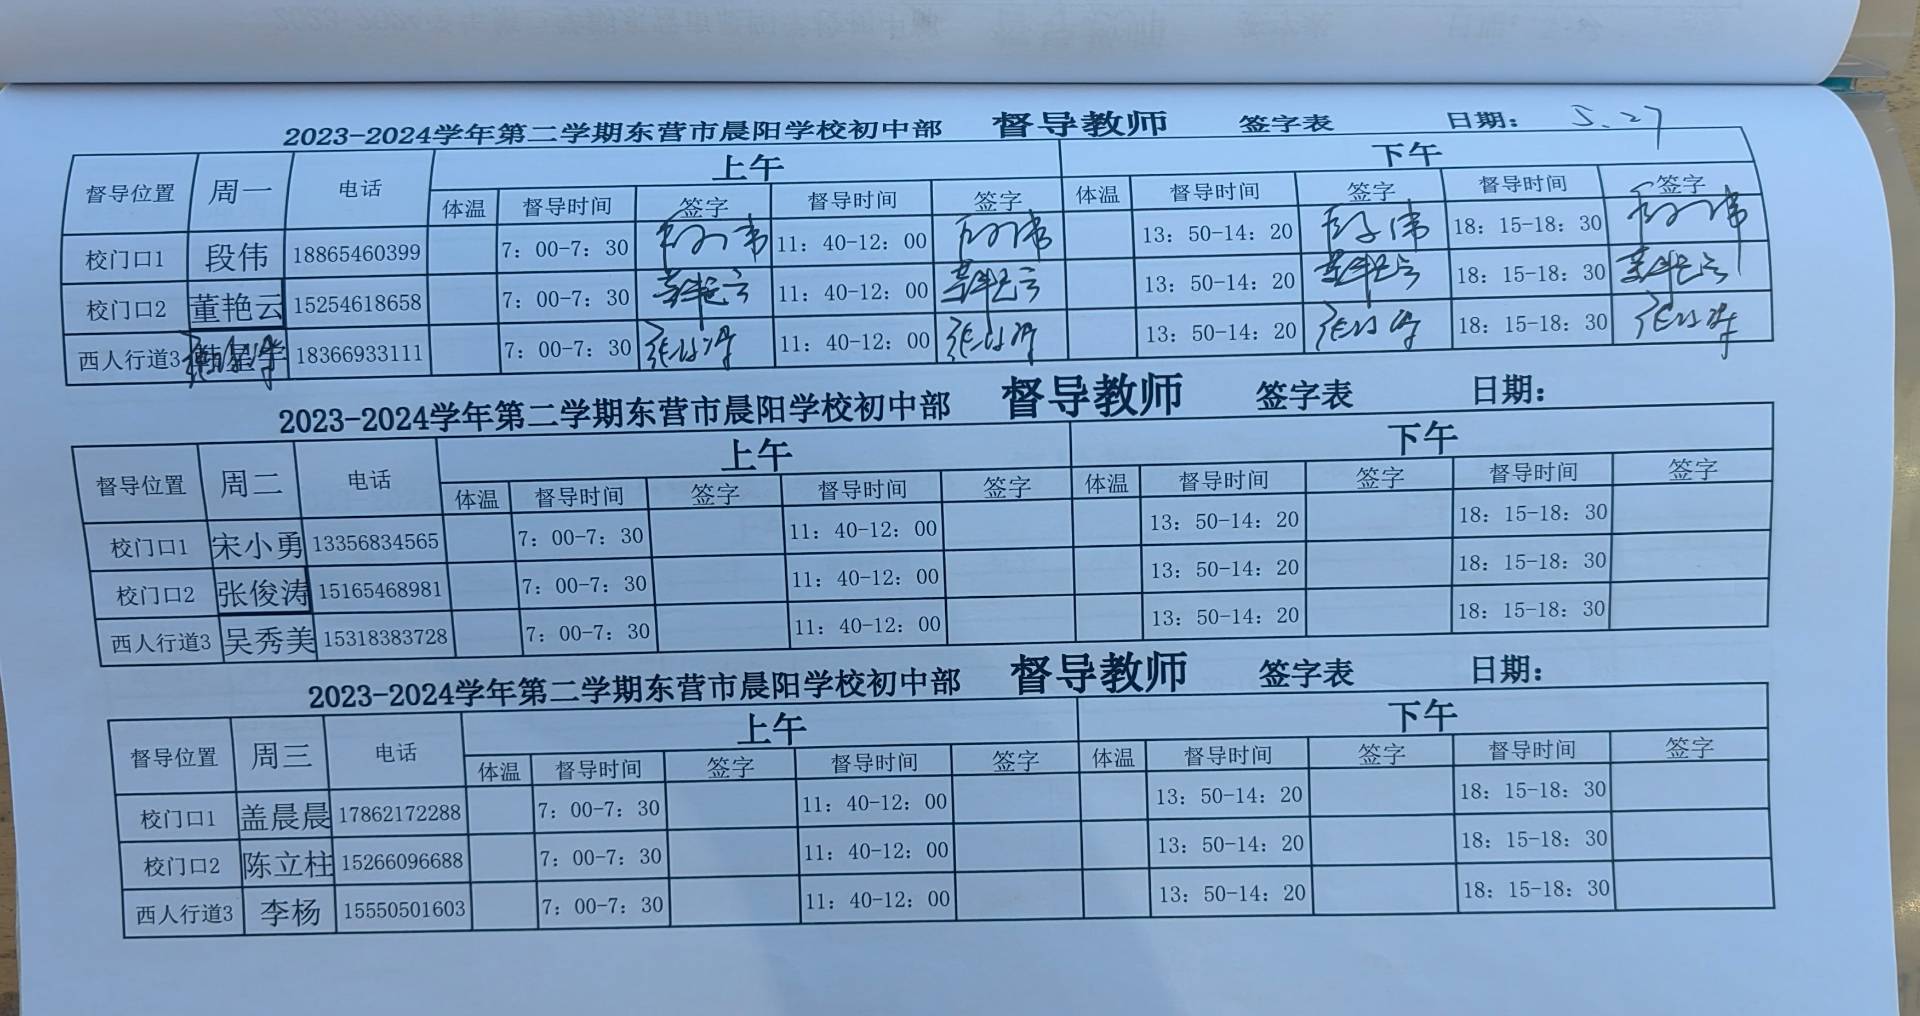 2023-2024学年第二学期东营市晨阳学校初中部 督导教师 签字表 日期： 5.27
督导位置 周一 电话 上午 下午
体温 督导时间 签字 督导时间 签字 体温 督导时间 签字 督导时间 签字
校门口1 段伟 18865460399 7：00-7：30 段伟 11：40-12：00 段伟 13：50-14：20 段伟 18：15-18：30 段伟
校门口2 董艳云 15254618658 7：00-7：30 董艳云 11：40-12：00 董艳云 13：50-14：20 董艳云 18：15-18：30 董艳云
西人行道3 18366933111 7：00-7：30 11：40-12：00 13：50-14：20 18：15-18：30
2023-2024学年第二学期东营市晨阳学校初中部 督导教师 签字表 日期：
督导位置 周二 电话 上午 下午
体温 督导时间 签字 督导时间 签字 体温 督导时间 签字 督导时间 签字
校门口1 宋小勇 13356834565 7：00-7：30 11：40-12：00 13：50-14：20 18：15-18：30
校门口2 张俊涛 15165468981 7：00-7：30 11：40-12：00 13：50-14：20 18：15-18：30
西人行道3 吴秀美 15318383728 7：00-7：30 11：40-12：00 13：50-14：20 18：15-18：30
2023-2024学年第二学期东营市晨阳学校初中部 督导教师 签字表 日期：
督导位置 周三 电话 上午 下午
体温 督导时间 签字 督导时间 签字 体温 督导时间 签字 督导时间 签字
校门口1 盖晨晨 17862172288 7：00-7：30 11：40-12：00 13：50-14：20 18：15-18：30
校门口2 陈立柱 15266096688 7：00-7：30 11：40-12：00 13：50-14：20 18：15-18：30
西人行道3 李杨 15550501603 7：00-7：30 11：40-12：00 13：50-14：20 18：15-18：30